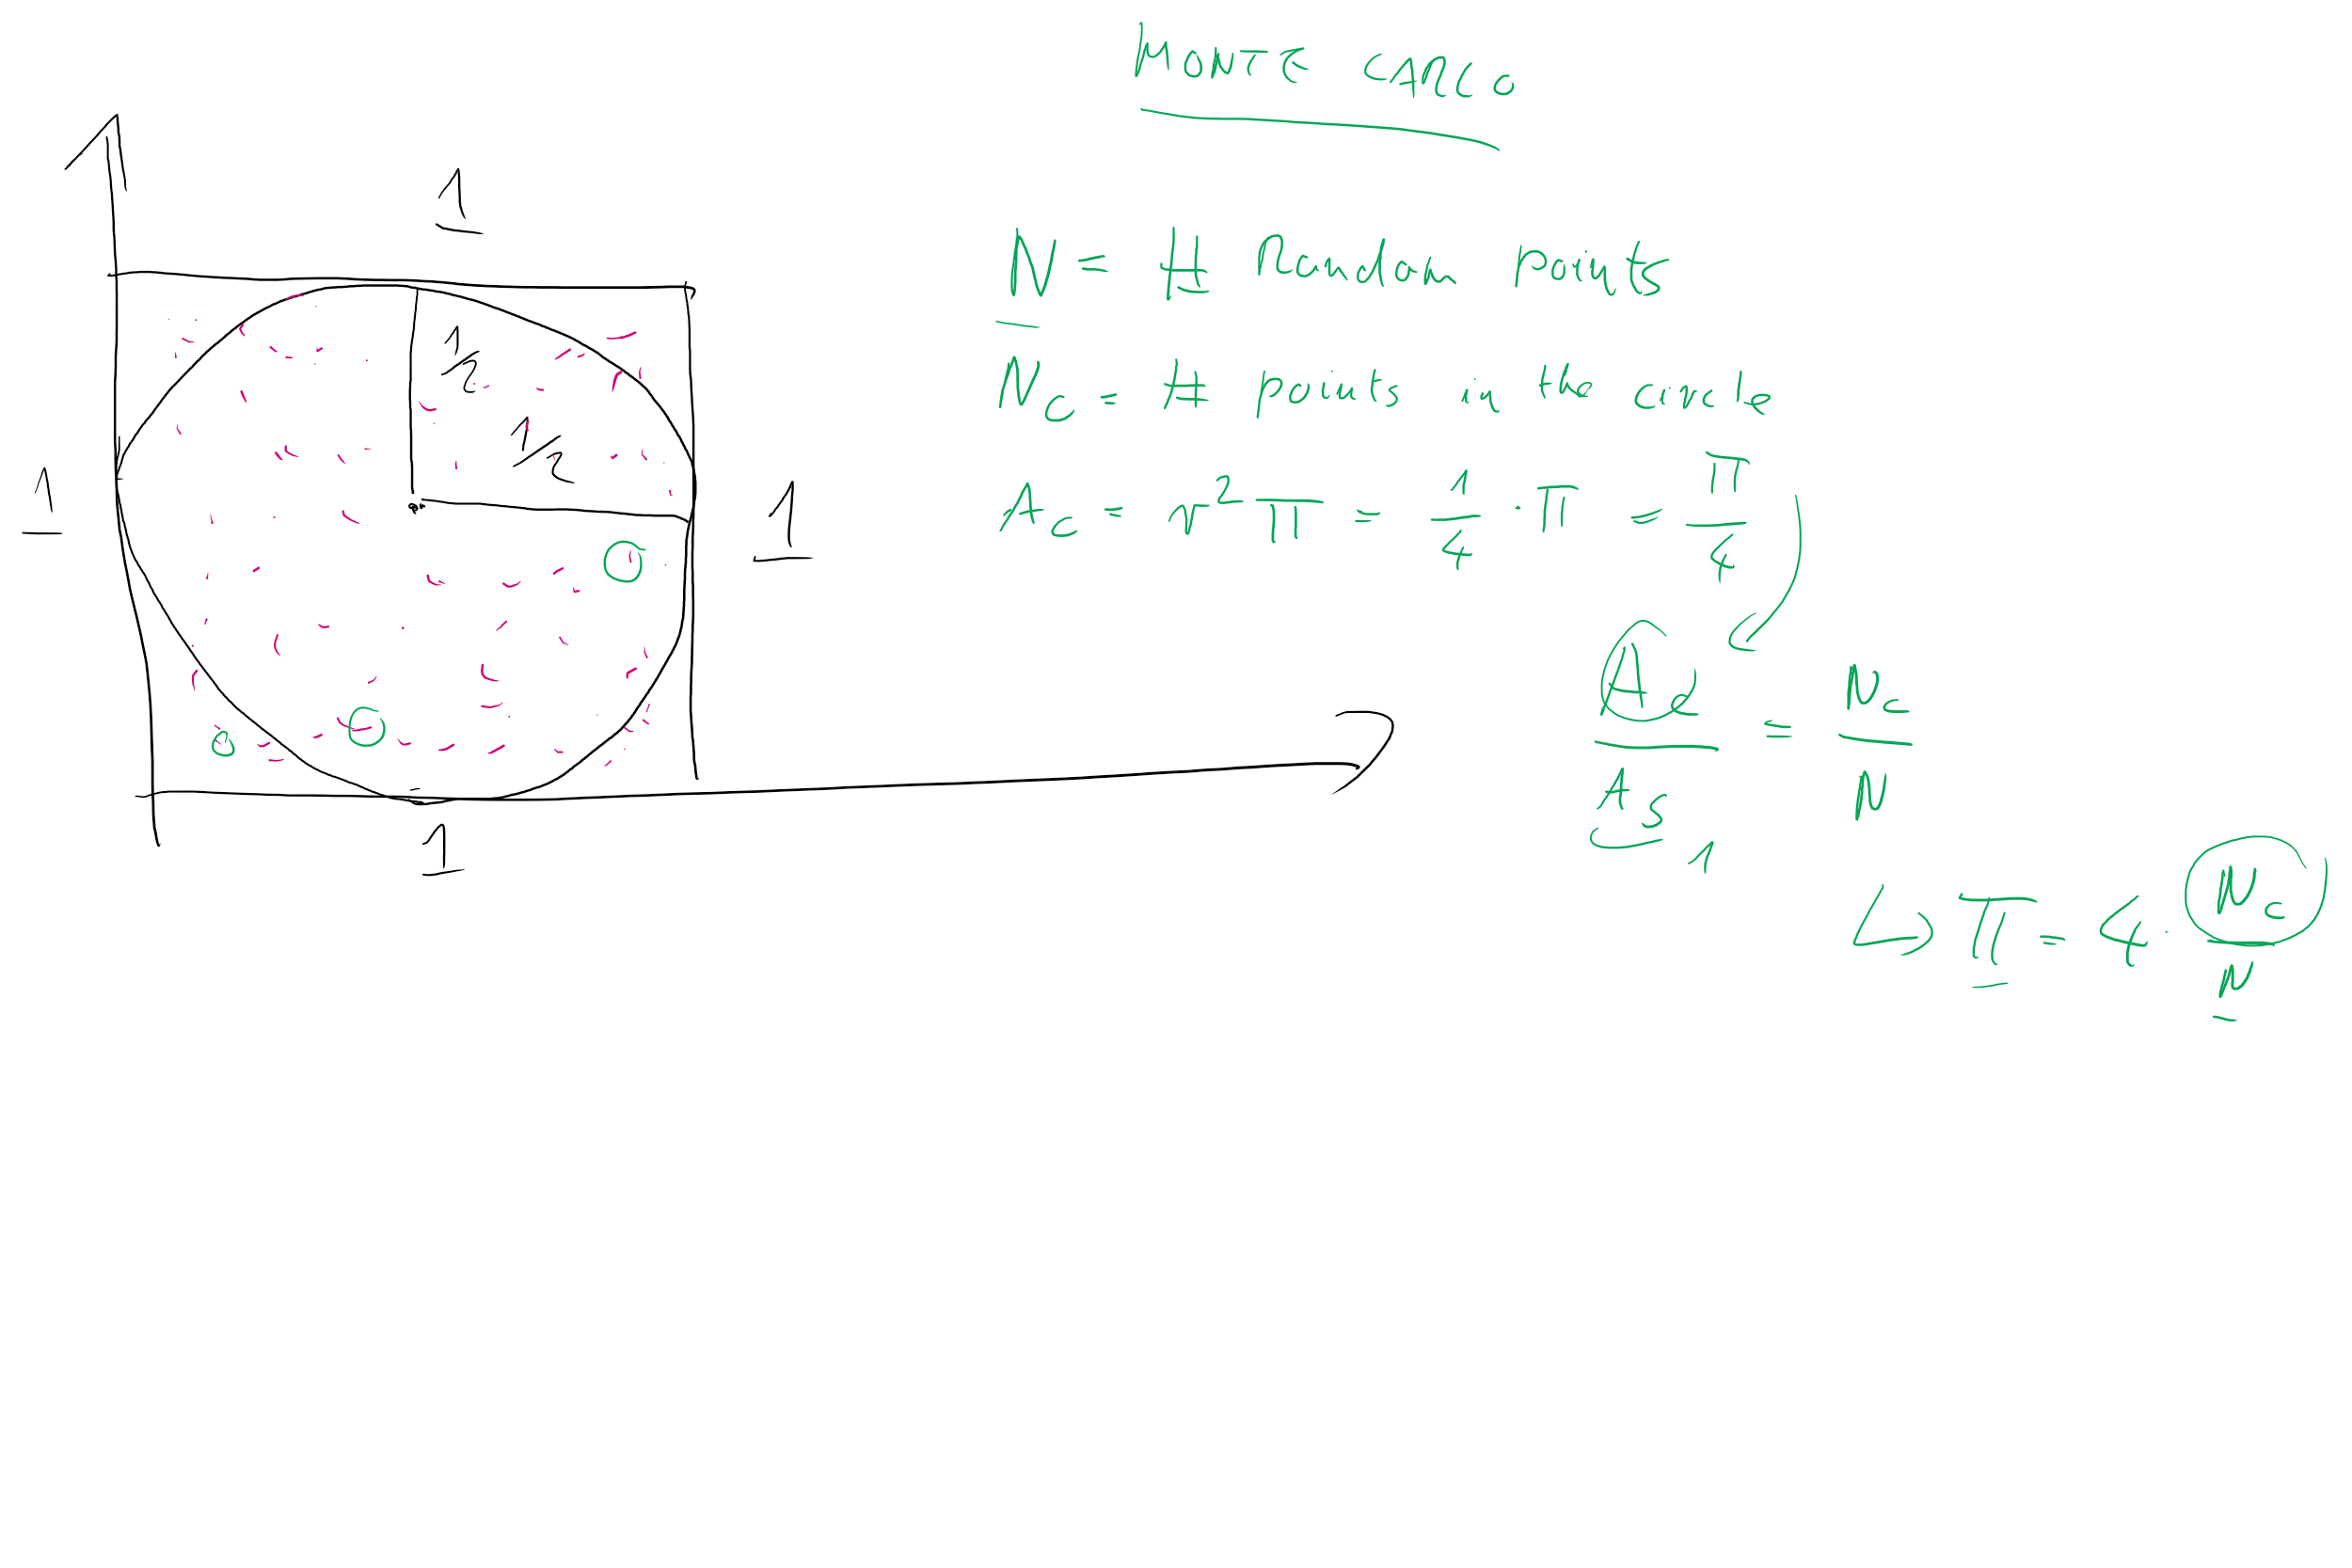 MONTE CARLO
1
N = # Random points
1/2
N_C = # points in the circle
1/2
1
1
A_C = r² π = 1/4 · π = π/4
A_C/A_S = N_C/N
1
1
↳ π = 4 · N_C/N